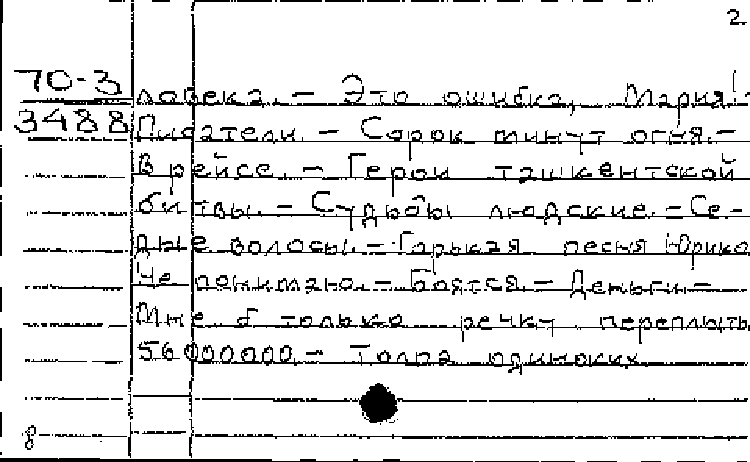 2
70-3 ловека. - Это ошибка, Мария! -
3488 Писатели. - Сорок минут огня. -
В рейсе. - Герои ташкентской
битвы. - Судьбы людские. - Се-
дые волосы. - Горькая песня Юрико
Не понимаю. - Боятся. - Деньги. -
Мне б только речку переплыть
56000000. - Толпа одиноких
8